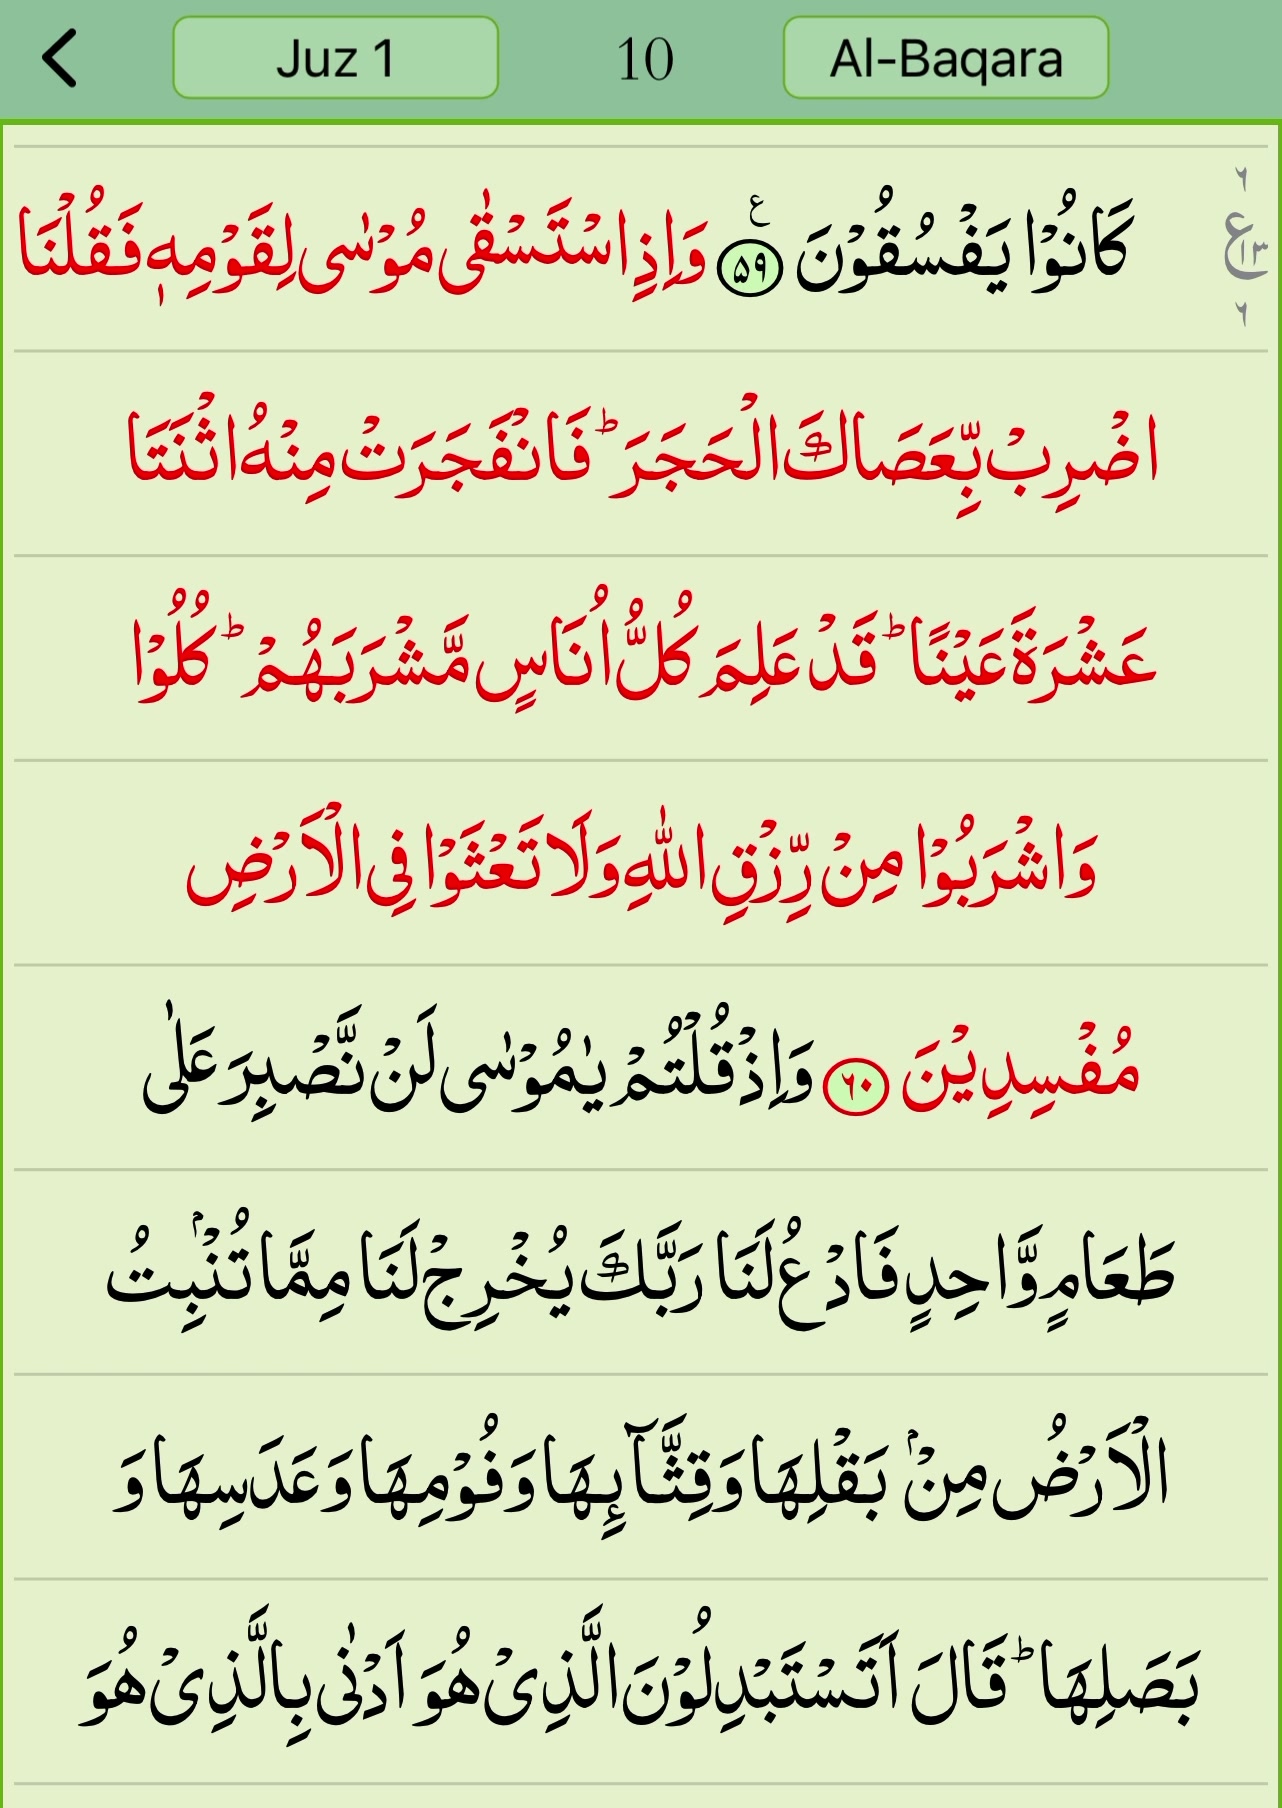 Juz 1 10 Al-Baqara
كَانُوۡا يَفۡسُقُوۡنَ ‏﴿۵۹﴾‏ ع وَاِذِ اسۡتَسۡقٰى مُوۡسٰى لِقَوۡمِهٖ فَقُلۡنَا
٦
ع
١٣
٦
اضۡرِبۡ بِّعَصَاكَ الۡحَجَرَ‌ؕ فَانۡفَجَرَتۡ مِنۡهُ اثۡنَتَا
عَشۡرَةَ عَيۡنًا‌ؕ قَدۡ عَلِمَ کُلُّ اُنَاسٍ مَّشۡرَبَهُمۡ‌ؕ کُلُوۡا
وَاشۡرَبُوۡا مِنۡ رِّزۡقِ اللّٰهِ وَلَا تَعۡثَوۡا فِى الۡاَرۡضِ
مُفۡسِدِيۡنَ ‏﴿۶۰﴾‏ وَاِذۡ قُلۡتُمۡ يٰمُوۡسٰى لَنۡ نَّصۡبِرَ عَلٰى
طَعَامٍ وَّاحِدٍ فَادۡعُ لَنَا رَبَّكَ يُخۡرِجۡ لَنَا مِمَّا تُنۡۢبِتُ
الۡاَرۡضُ مِنۡۢ بَقۡلِهَا وَقِثَّآئِهَا وَفُوۡمِهَا وَعَدَسِهَا وَ
بَصَلِهَا‌ؕ قَالَ اَتَسۡتَبۡدِلُوۡنَ الَّذِىۡ هُوَ اَدۡنٰى بِالَّذِىۡ هُوَ